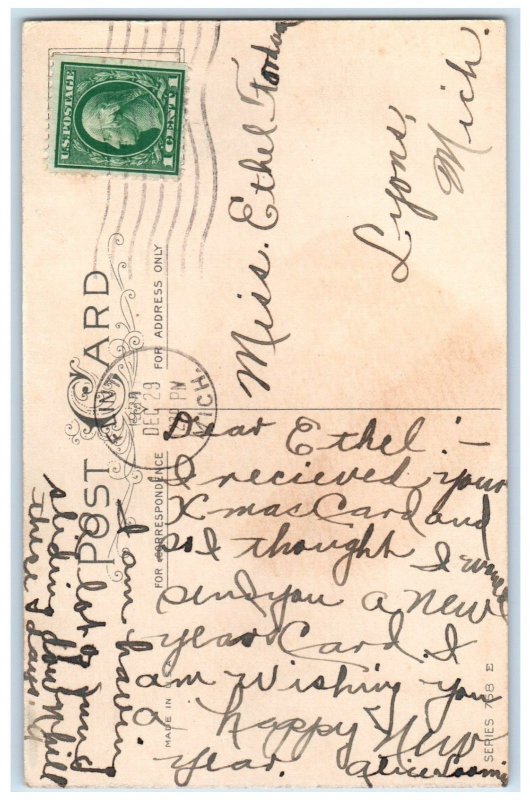 U.S. POSTAGE
1 CENT 1
FLINT
MICH.
DEC 29
PM
POST CARD
FOR CORRESPONDENCE
FOR ADDRESS ONLY
MADE IN
SERIES 768 E
Miss. Ethel Jordan
Lyons,
Mich.
Dear Ethel:—
I recieved your
Xmas Card and
so I thought I would
send you a New
year Card. I
am wishing you
a happy New
year. Alice Loomis
I am having
a lot of fund
sliding down hill
these days.